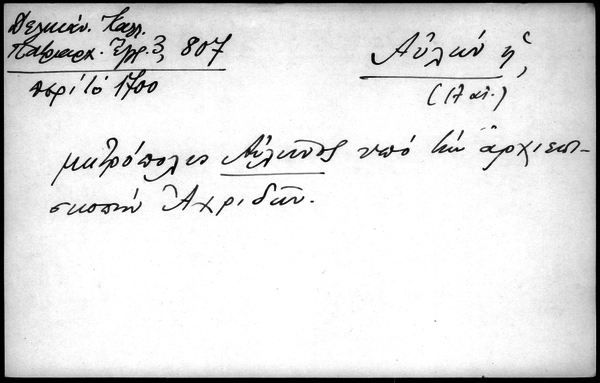 Δελικάν. Καλλ.
Πατριαρχ. Ἔγγρ. 3, 807
περί τό 1700
Αὐλών ἡ,
(17 αἰ.)
μητρόπολις Αὐλῶνος ὑπό τήν ἀρχιεπι-
σκοπήν Ἀχριδῶν.